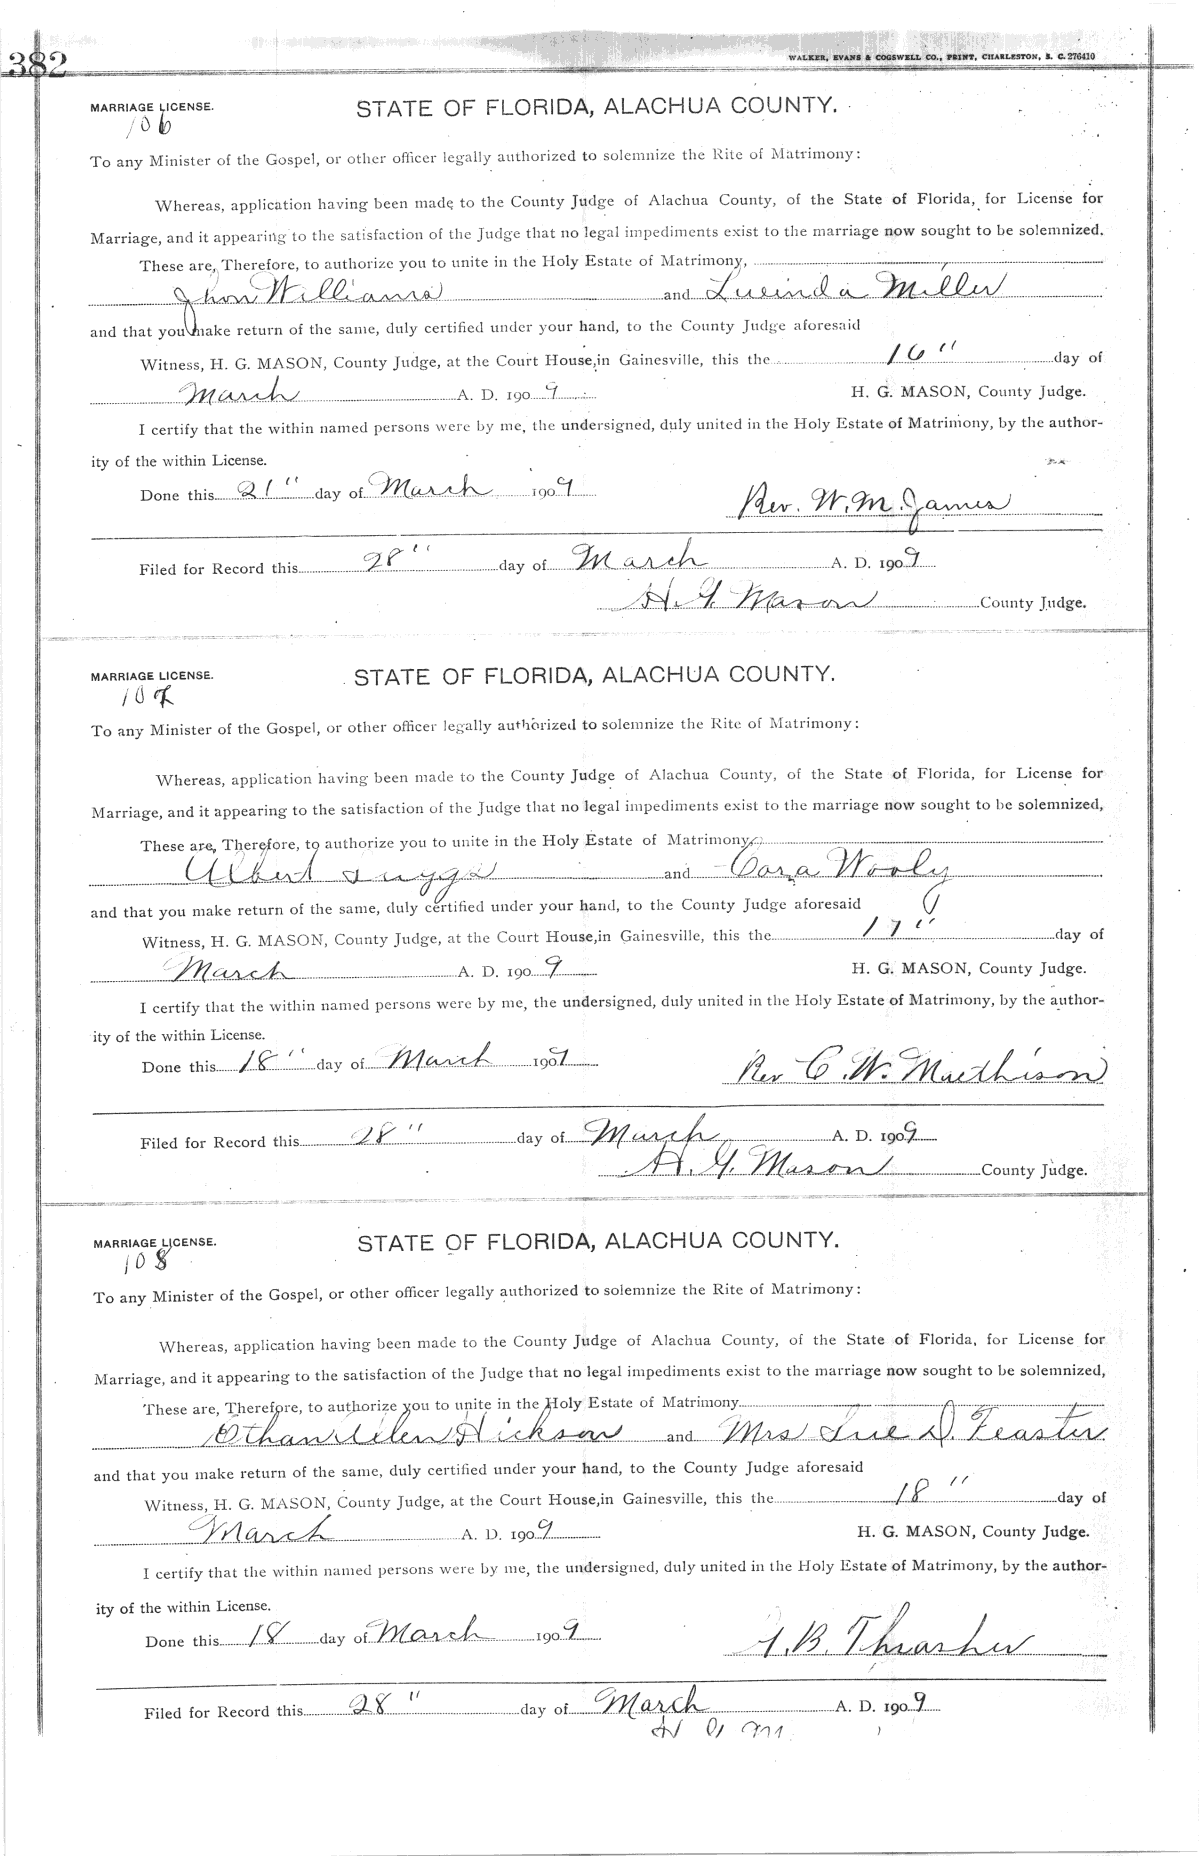 382
WALKER, EVANS & COGSWELL CO., PRINT, CHARLESTON, S. C. 276410
MARRIAGE LICENSE. STATE OF FLORIDA, ALACHUA COUNTY.
106
To any Minister of the Gospel, or other officer legally authorized to solemnize the Rite of Matrimony:
Whereas, application having been made to the County Judge of Alachua County, of the State of Florida, for License for
Marriage, and it appearing to the satisfaction of the Judge that no legal impediments exist to the marriage now sought to be solemnized.
These are, Therefore, to authorize you to unite in the Holy Estate of Matrimony,
Jhon Williams and Lucinda Miller
and that you make return of the same, duly certified under your hand, to the County Judge aforesaid
Witness, H. G. MASON, County Judge, at the Court House, in Gainesville, this the 16" day of
March A. D. 1909 H. G. MASON, County Judge.
I certify that the within named persons were by me, the undersigned, duly united in the Holy Estate of Matrimony, by the author-
ity of the within License.
Done this 21" day of March 1909
Rev. W. M. James
Filed for Record this 28" day of March A. D. 1909
H. G. Mason County Judge.
MARRIAGE LICENSE. STATE OF FLORIDA, ALACHUA COUNTY.
107
To any Minister of the Gospel, or other officer legally authorized to solemnize the Rite of Matrimony:
Whereas, application having been made to the County Judge of Alachua County, of the State of Florida, for License for
Marriage, and it appearing to the satisfaction of the Judge that no legal impediments exist to the marriage now sought to be solemnized,
These are, Therefore, to authorize you to unite in the Holy Estate of Matrimony,
Albert Suggs and Cora Wooly
and that you make return of the same, duly certified under your hand, to the County Judge aforesaid
Witness, H. G. MASON, County Judge, at the Court House, in Gainesville, this the 17" day of
March A. D. 1909 H. G. MASON, County Judge.
I certify that the within named persons were by me, the undersigned, duly united in the Holy Estate of Matrimony, by the author-
ity of the within License.
Done this 18" day of March 1909
Rev C. W. Maethison
Filed for Record this 28" day of March A. D. 1909
H. G. Mason County Judge.
MARRIAGE LICENSE. STATE OF FLORIDA, ALACHUA COUNTY.
108
To any Minister of the Gospel, or other officer legally authorized to solemnize the Rite of Matrimony:
Whereas, application having been made to the County Judge of Alachua County, of the State of Florida, for License for
Marriage, and it appearing to the satisfaction of the Judge that no legal impediments exist to the marriage now sought to be solemnized,
These are, Therefore, to authorize you to unite in the Holy Estate of Matrimony
Ethan Allen Hickson and Mrs Sue D. Feaster
and that you make return of the same, duly certified under your hand, to the County Judge aforesaid
Witness, H. G. MASON, County Judge, at the Court House, in Gainesville, this the 18" day of
March A. D. 1909 H. G. MASON, County Judge.
I certify that the within named persons were by me, the undersigned, duly united in the Holy Estate of Matrimony, by the author-
ity of the within License.
Done this 18 day of March 1909
B. Thrasher
Filed for Record this 28" day of March A. D. 1909
H G M